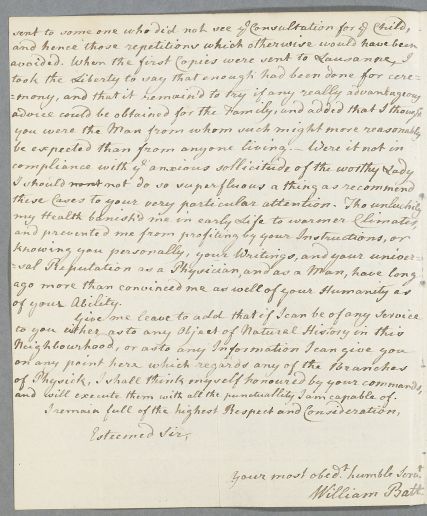 sent to some one who did not see ye Consultation for ye Child,
and hence those repetitions which otherwise would have been
avoided. When the first Copies were sent to Lausanne, I
took the Liberty to say that enough had been done for cere=
=mony, and that it remain'd to try if any really advantageous
advice could be obtained for the Family, and added that I thought
you were the Man from whom such might more reasonably
be expected than from anyone living. – Were it not in
compliance with ye anxious sollicitude of the worthy Lady
I should not do so superfluous a thing as recommend
these Cases to your very particular attention. Tho unluckily
my Health banish'd me in early Life to warmer Climates,
and prevented me from profiting by your Instructions, or
knowing you personally, your Writings, and your univer=
=sal Reputation as a Physician, and as a Man, have long
ago more than convinced me as well of your Humanity as
of your Ability.
Give me leave to add that if I can be of any Service
to you either as to any Object of Natural History in this
Neighbourhood, or as to any Information I can give you
on any point here which regards any of the Branches
of Physick, I shall think myself honoured by your commands,
and will execute them with all the punctuallity I am capable of.
I remain full of the highest Respect and Consideration,
Esteemed Sir,
Your most obedt. humble Servt.
William Batt